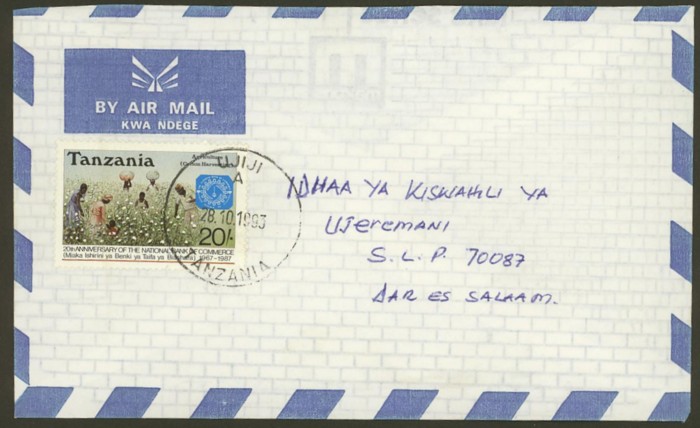 BY AIR MAIL
KWA NDEGE
Tanzania
Agriculture
20/-
20th ANNIVERSARY OF THE NATIONAL BANK OF COMMERCE
(Miaka Ishirini ya Benki ya Taifa ya Biashara) 1967-1987
UJIJI
A
28.10.1993
TANZANIA
IDHAA YA KISWAHILI YA
UJEREMANI
S.L.P. 70087
DAR ES SALAAM.